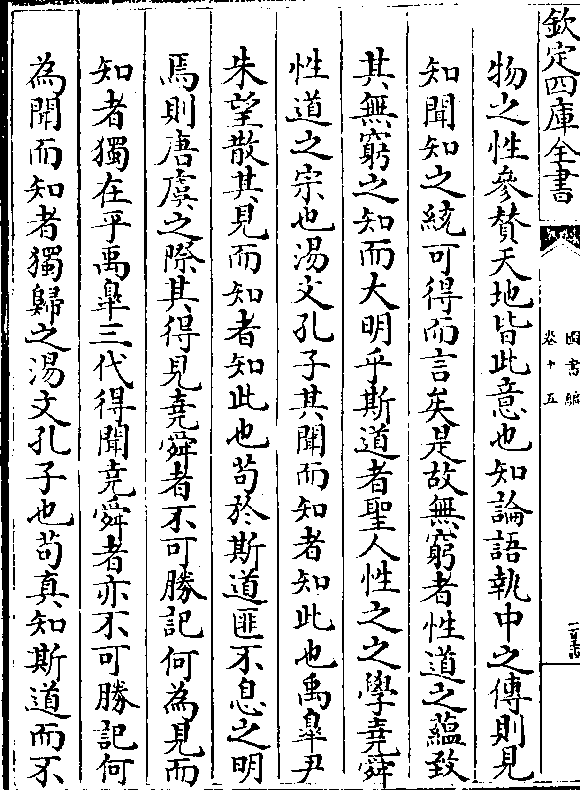 欽定四庫全書
圖書編
卷十五
物之性參贊天地皆此意也知論語執中之傳則見
知聞知之統可得而言矣是故無窮者性道之蘊致
其無窮之知而大明乎斯道者聖人性之之學堯舜
性道之宗也湯文孔子其聞而知者知此也禹臯尹
朱望散其見而知者知此也苟於斯道匪不息之明
焉則唐虞之際其得見堯舜者不可勝記何為見而
知者獨在乎禹臯三代得聞堯舜者亦不可勝記何
為聞而知者獨歸之湯文孔子也苟真知斯道而不